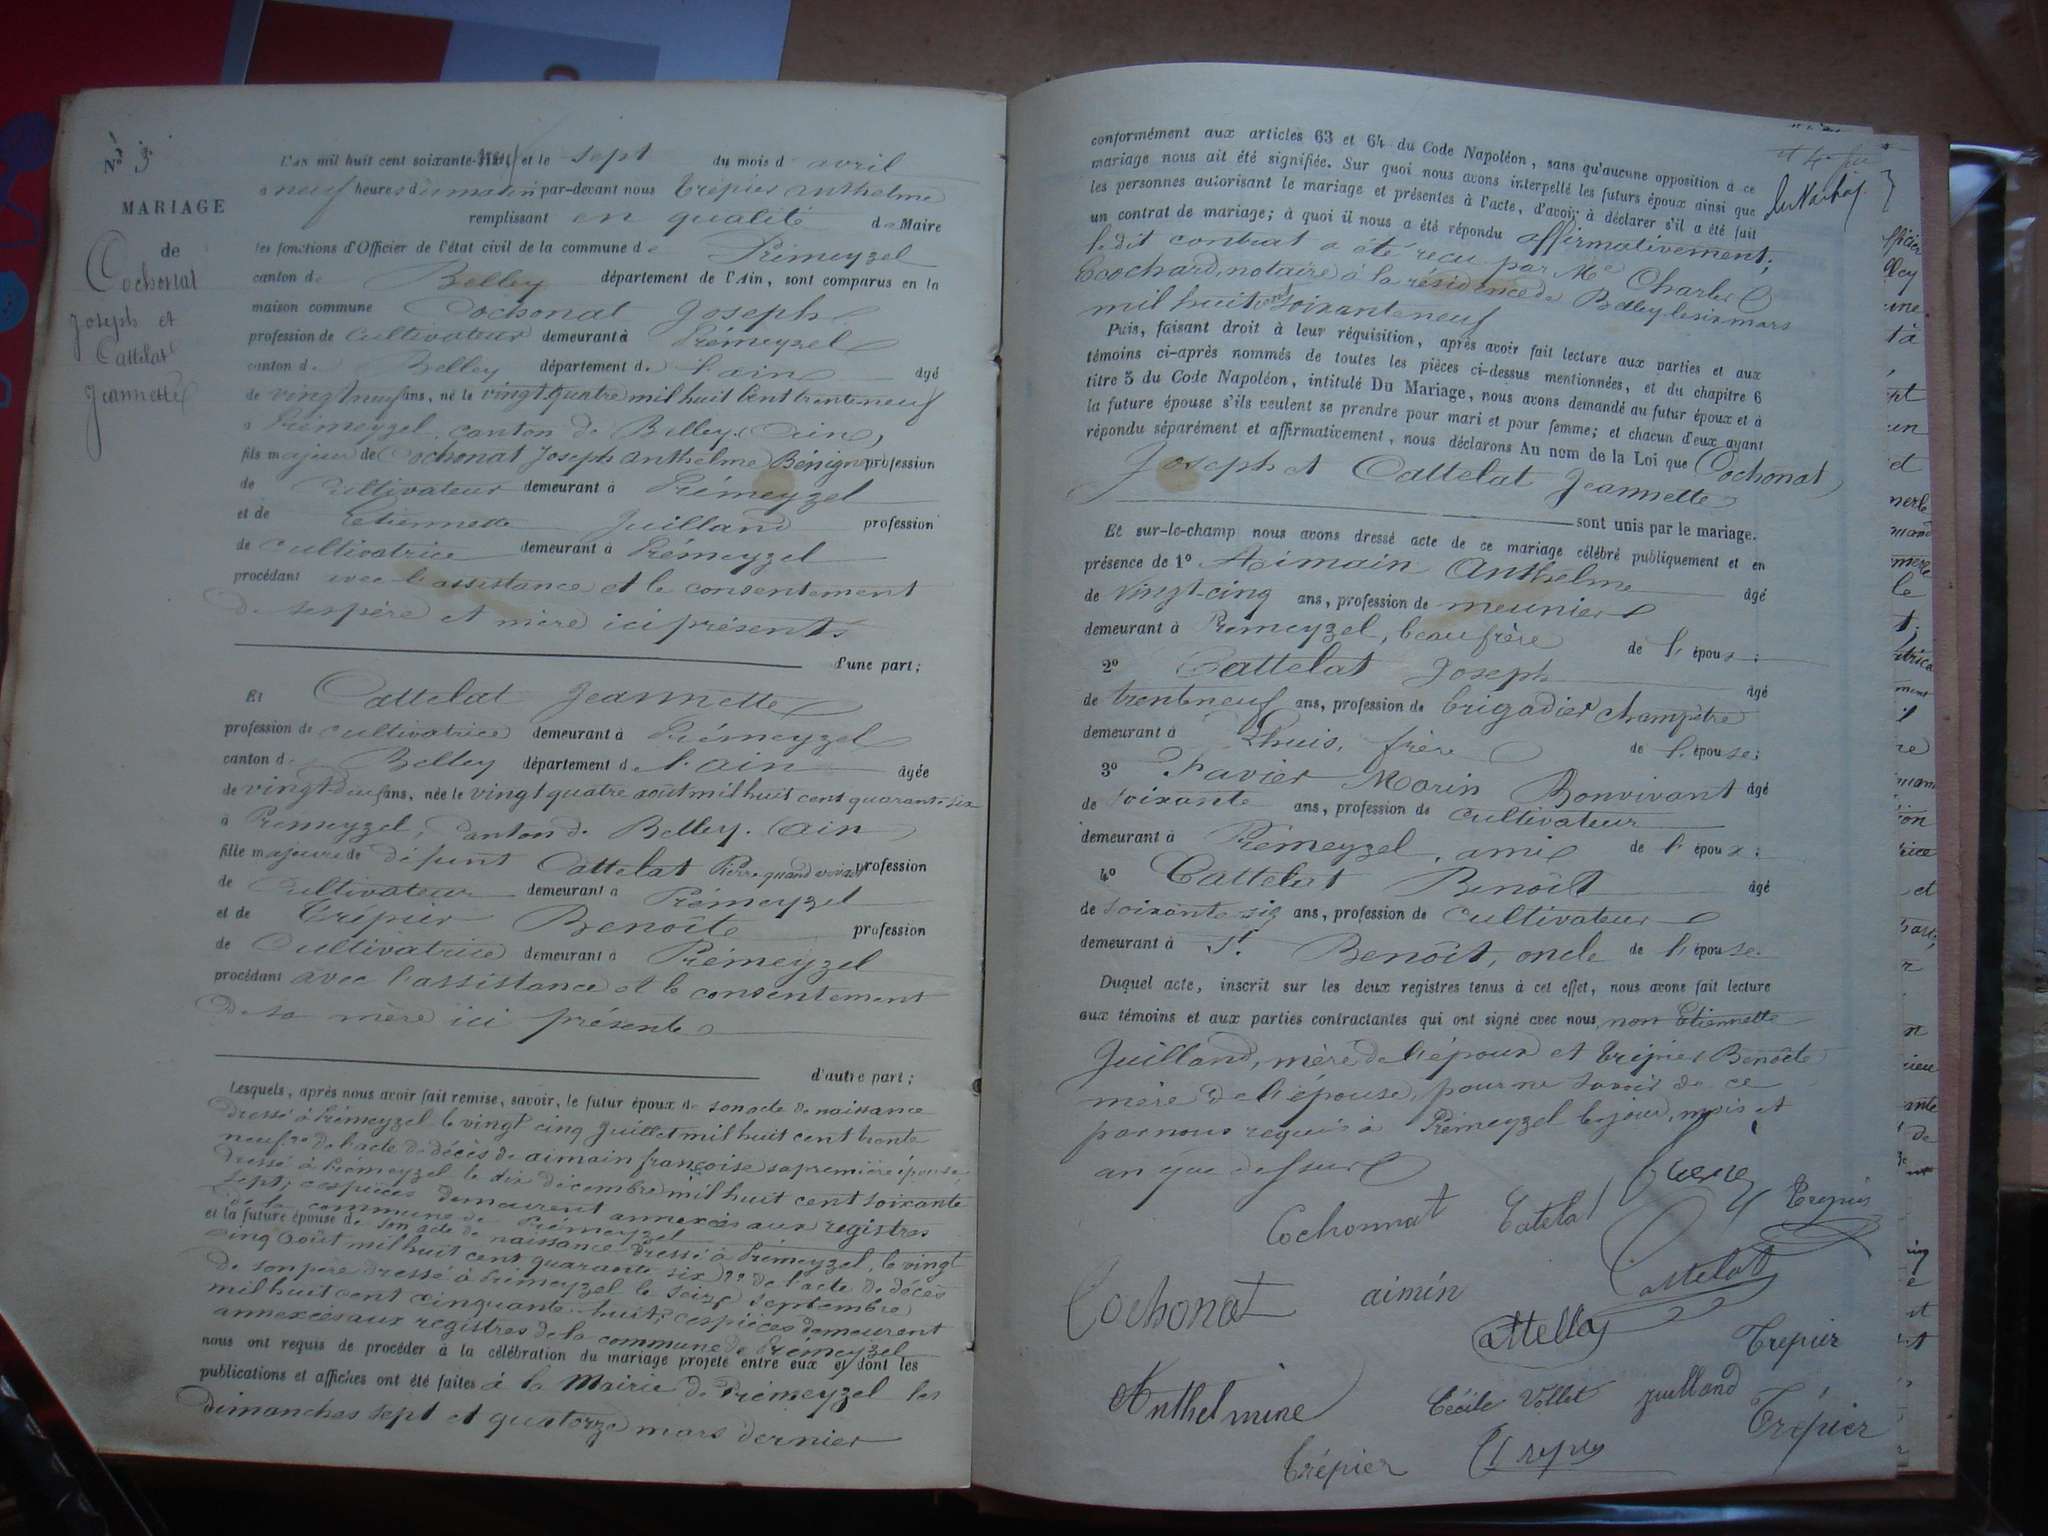 N° 3
MARIAGE
de
Cochonat
Joseph et
Cattelat
Jeannette
L'an mil huit cent soixante-neuf et le sept du mois d avril
à neuf heures du matin par-devant nous Trépier Anthelme
remplissant en qualité de Maire
les fonctions d'Officier de l'état civil de la commune de Prémeyzel
canton de Belley département de l'Ain, sont comparus en la
maison commune Cochonat Joseph
profession de cultivateur demeurant à Prémeyzel
canton de Belley département de l'ain âgé
de vingt neuf ans, né le vingt quatre mil huit cent trente neuf
à Prémeyzel, canton de Belley (Ain)
fils majeur de Cochonat Joseph Anthelme Bénigne profession
de cultivateur demeurant à Prémeyzel
et de Etiennette Juilland profession
de cultivatrice demeurant à Prémeyzel
procédant avec l'assistance et le consentement
de ses père et mère ici présents
d'une part;
Et Cattelat Jeannette
profession de cultivatrice demeurant à Prémeyzel
canton de Belley département de l'ain âgée
de vingt deux ans, née le vingt quatre août mil huit cent quarante six
à Prémeyzel, canton de Belley (Ain)
fille majeure de défunt Cattelat Pierre quand vivait profession
de Cultivateur demeurant à Prémeyzel
et de Trépier Benoîte profession
de Cultivatrice demeurant à Prémeyzel
procédant avec l'assistance et le consentement
de sa mère ici présente
d'autre part;
Lesquels, après nous avoir fait remise, savoir, le futur époux de son acte de naissance
dressé à Prémeyzel le vingt cinq Juillet mil huit cent trente
neuf 2° de l'acte de décès de aimain françoise sa première épouse
dressé à Prémeyzel le dix décembre mil huit cent soixante
sept; ces pièces demeurent annexées aux registres
de la commune de Prémeyzel
et la future épouse de son acte de naissance dressé à Prémeyzel, le vingt
cinq août mil huit cent quarante six 2° de l'acte de décès
de son père dressé à Prémeyzel le seize septembre
mil huit cent cinquante huit; ces pièces demeurent
annexées aux registres de la commune de Prémeyzel
nous ont requis de procéder à la célébration du mariage projeté entre eux et dont les
publications et affiches ont été faites à la Mairie de Prémeyzel les
dimanches sept et quatorze mars dernier
conformément aux articles 63 et 64 du Code Napoléon, sans qu'aucune opposition à ce
mariage nous ait été signifiée. Sur quoi nous avons interpellé les futurs époux ainsi que
les personnes autorisant le mariage et présentes à l'acte, d'avoir à déclarer s'il a été fait
un contrat de mariage; à quoi il nous a été répondu affirmativement,
ledit contrat a été reçu par Me Charles
notaire à la résidence de Belley le six mars
mil huit cent soixante neuf
Puis, faisant droit à leur réquisition, après avoir fait lecture aux parties et aux
témoins ci-après nommés de toutes les pièces ci-dessus mentionnées, et du chapitre 6
titre 5 du Code Napoléon, intitulé Du Mariage, nous avons demandé au futur époux et à
la future épouse s'ils veulent se prendre pour mari et pour femme; et chacun d'eux ayant
répondu séparément et affirmativement, nous déclarons Au nom de la Loi que Cochonat
Joseph et Cattelat Jeannette
sont unis par le mariage.
Et sur-le-champ nous avons dressé acte de ce mariage célébré publiquement et en
présence de 1° Aimain Anthelme âgé
de vingt-cinq ans, profession de meunier
demeurant à Prémeyzel, beau frère de l'époux;
2° Cattelat Joseph âgé
de trente neuf ans, profession de brigadier champêtre
demeurant à Lhuis, frère de l'épouse;
3° Favier Marin Bonvivant âgé
de soixante ans, profession de cultivateur
demeurant à Prémeyzel, ami de l'époux;
4° Cattelat Benoît âgé
de soixante six ans, profession de cultivateur
demeurant à St Benoît, oncle de l'épouse.
Duquel acte, inscrit sur les deux registres tenus à cet effet, nous avons fait lecture
aux témoins et aux parties contractantes qui ont signé avec nous, non Etiennette
Juilland, mère de l'époux et Trépier Benoîte
mère de l'épouse, pour ne savoir de ce
par nous requis à Prémeyzel le jour, mois et
an que dessus
Cochonnat Catela Trepier
Cattelat
Cochonat aimin
Cattella Trepier
Anthelmine Cécile Vollet juilland
Trépier
Trépier